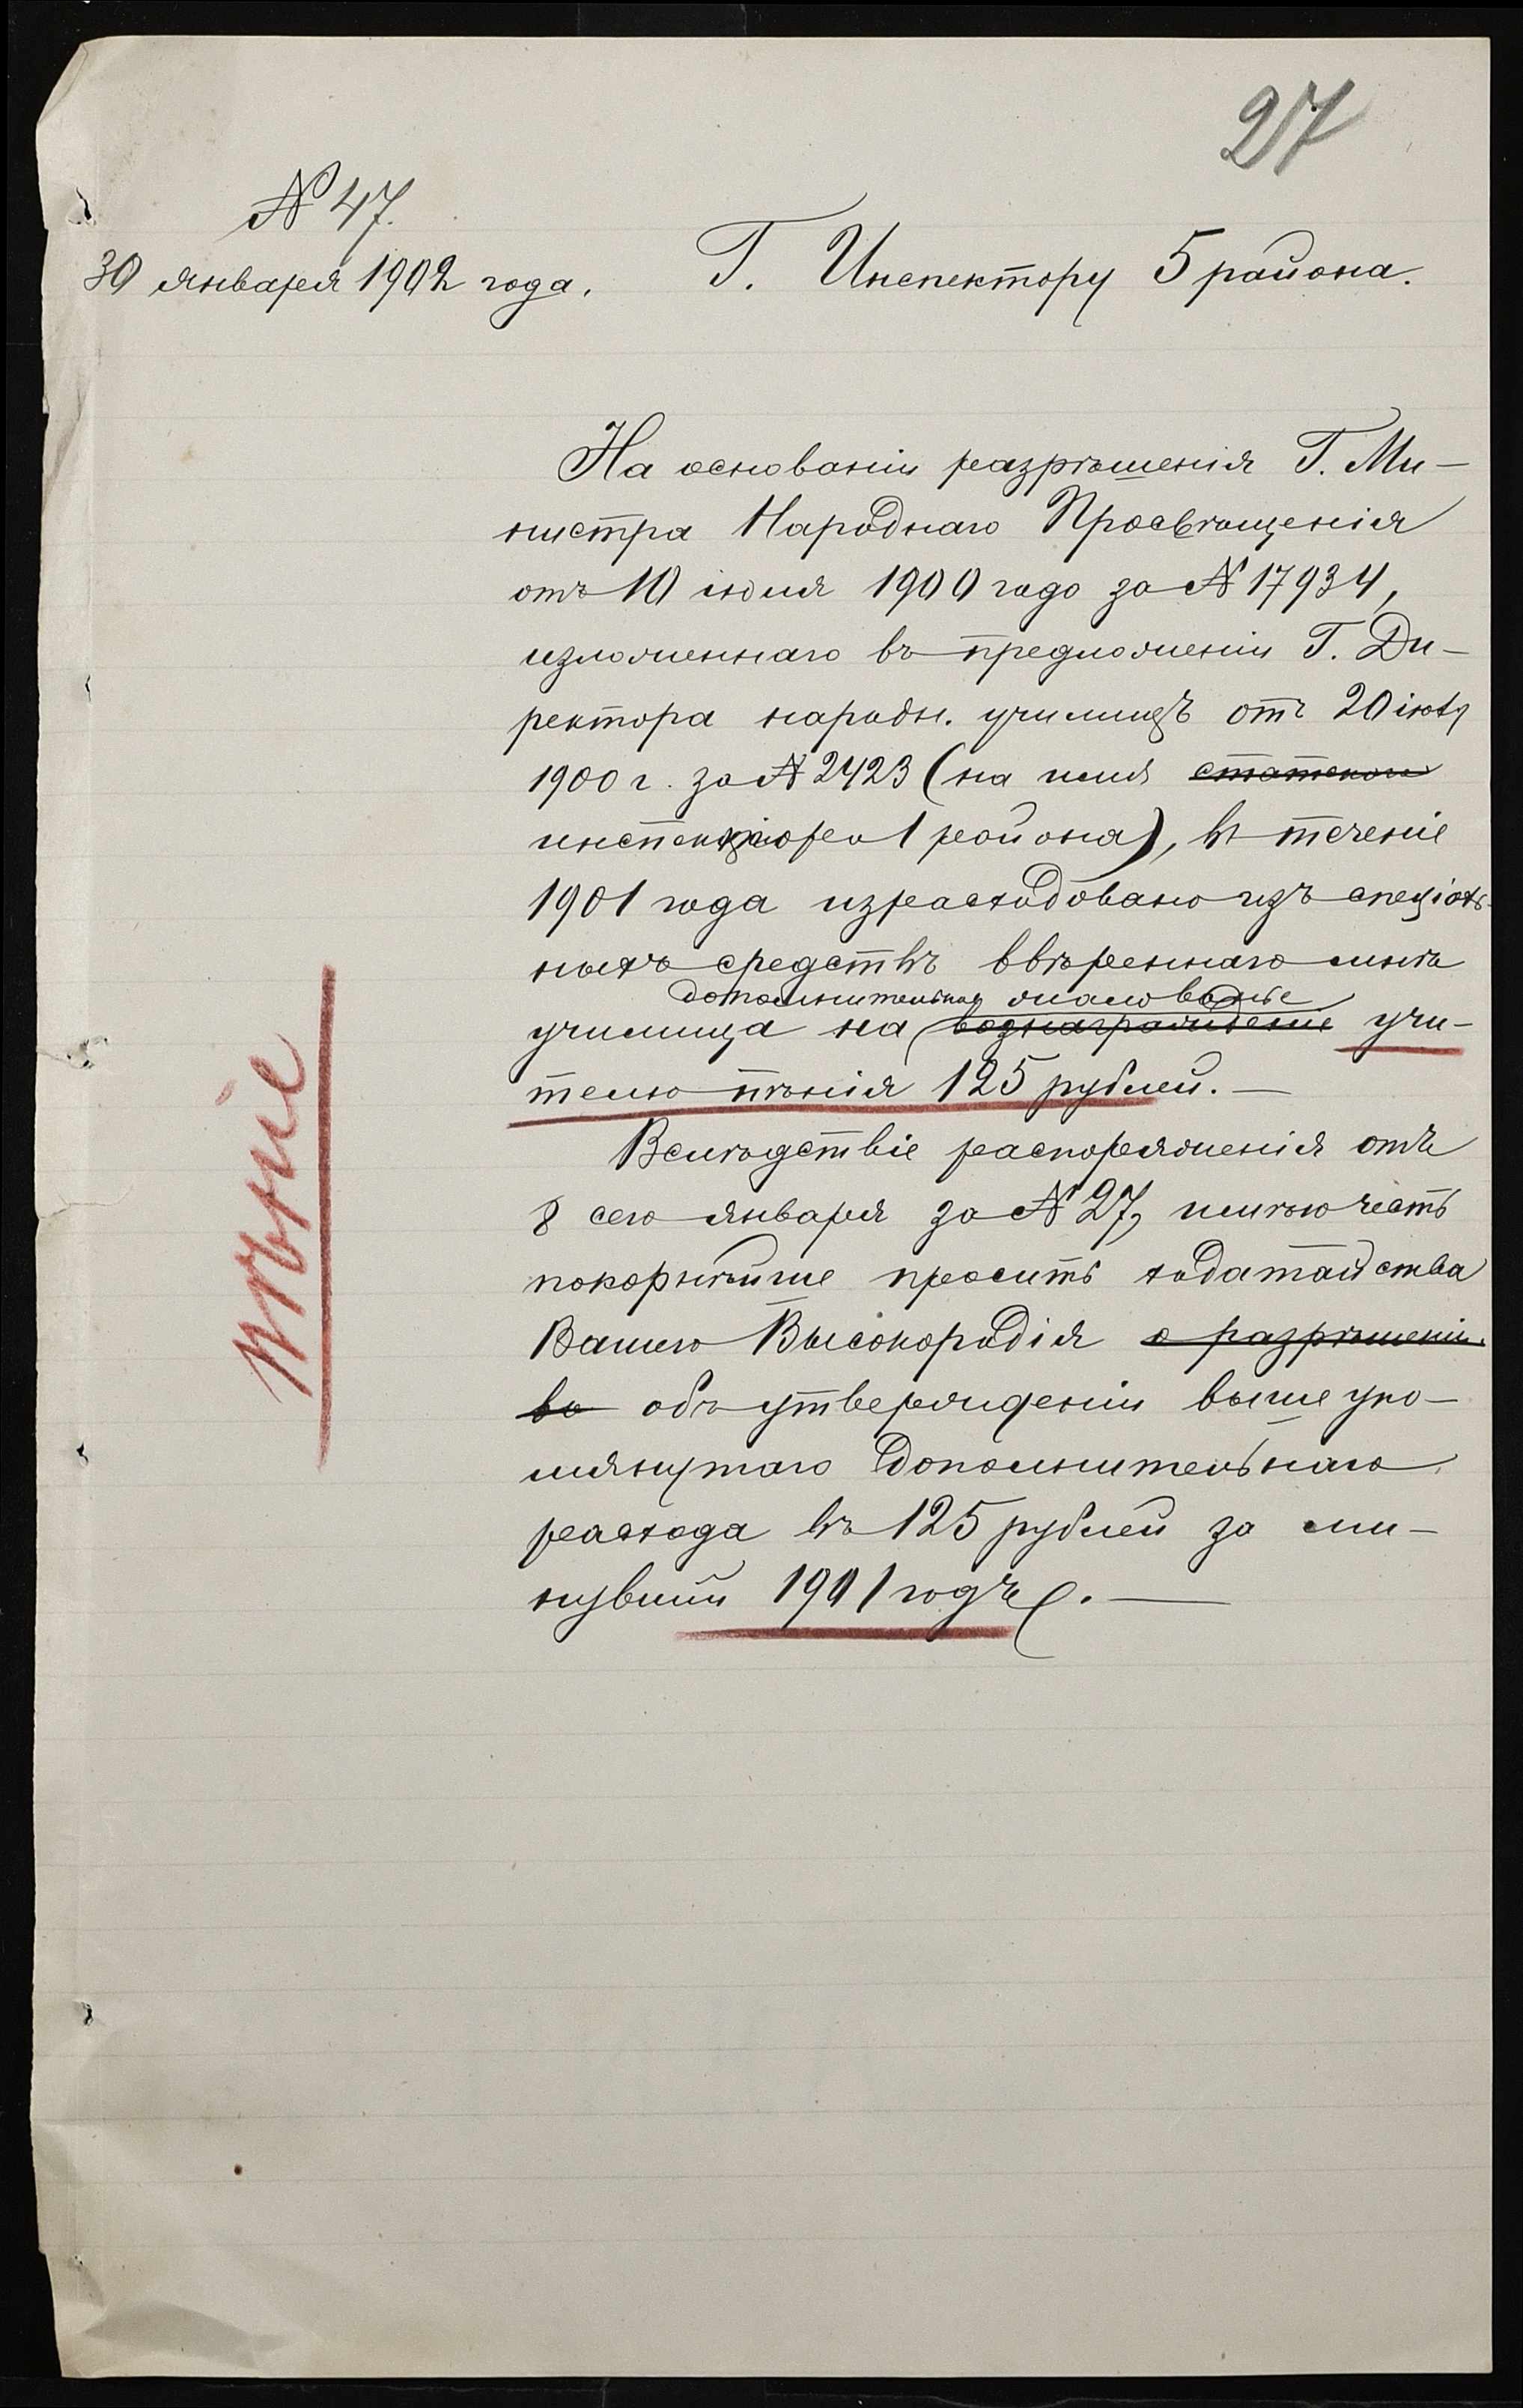 27
№ 47.
30 января 1902 года.
Г. Инспектору 5 района.
На основаніи разрѣшенія Г. Ми-
нистра Народнаго Просвѣщенія
отъ 10 іюля 1900 года за № 17934,
изложеннаго въ предложеніи Г. Ди-
ректора народн. училищъ отъ 20 іюля
1900 г. за № 2423 (на имя
инспектора 1 района), въ теченіе
1901 года израсходовано изъ спеціаль-
ныхъ средствъ ввѣреннаго мнѣ
дополнительное жалованье
училища на вознагражденіе учи-
телю пѣнія 125 рублей. —
Вслѣдствіе распоряженія отъ
8 сего января за № 27, имѣю честь
покорнѣйше просить ходатайства
Вашего Высокородія о разрѣшеніи
во объ утвержденіи выше упо-
мянутаго дополнительнаго
расхода въ 125 рублей за ми-
нувшій 1901 годъ. —
пѣніе